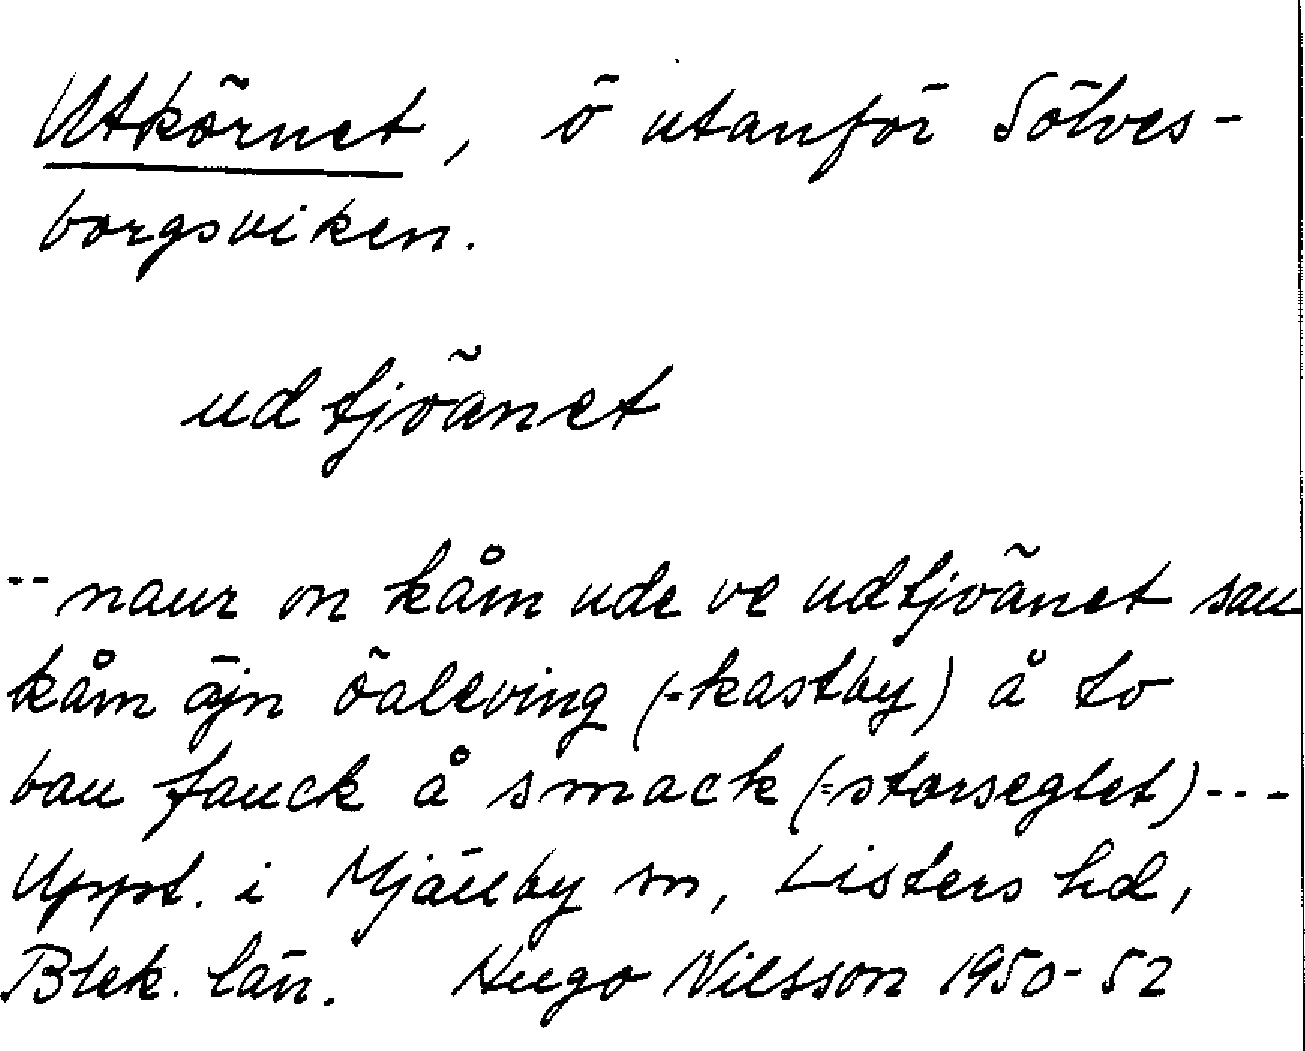 Utkörnet, ö utanför Sölves-
borgsviken.
udtjöänet
-- naur on kåm ude ve udtjöänet sau
kåm äjn öaleving (=kastby) å to
bau fauck å smack (=storseglet) ---
Uppt. i Mjällby sn, Listers hd,
Blek. län. Hugo Nilsson 1950-52